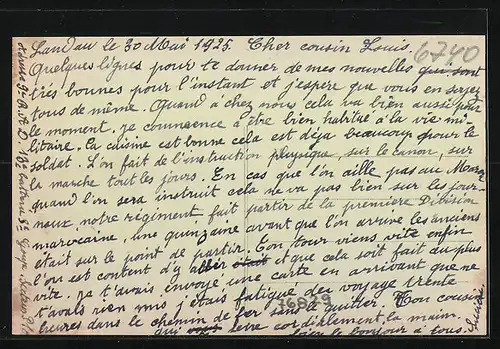 Landau le 30 Mai 1925. Cher cousin Louis.
6740
Quelques lignes pour te donner de mes nouvelles qui sont
très bonnes pour l'instant et j'espère que vous en serez
tous de même. Quand à chez nous cela va bien aussi pour
le moment, je commence à être bien habitué à la vie mi-
litaire. la cuisine est bonne cela est déja beaucoup pour le
soldat. L'on fait de l'instruction physique, sur le canon, sur
la marche tout les jours. En cas que l'on aille pas au Maroc
quand l'on sera instruit cela ne va pas bien sur les jour-
naux, notre régiment fait partir de la première Division
marocaine, une quinzaine avant que l'on arrive les anciens
était sur le point de partir. Ton tour viens vite enfin
l'on est content d'y aller et que cela soit fait au plus
vite. je t'avais envoyé une carte en arrivant que ne
t'avais rien mis j'étais fatigué des voyage trente
heures dans le chemin de fer sans le quitter. Ton cousin
76829
qui serre cordialement la main.
le bonjour à tous.